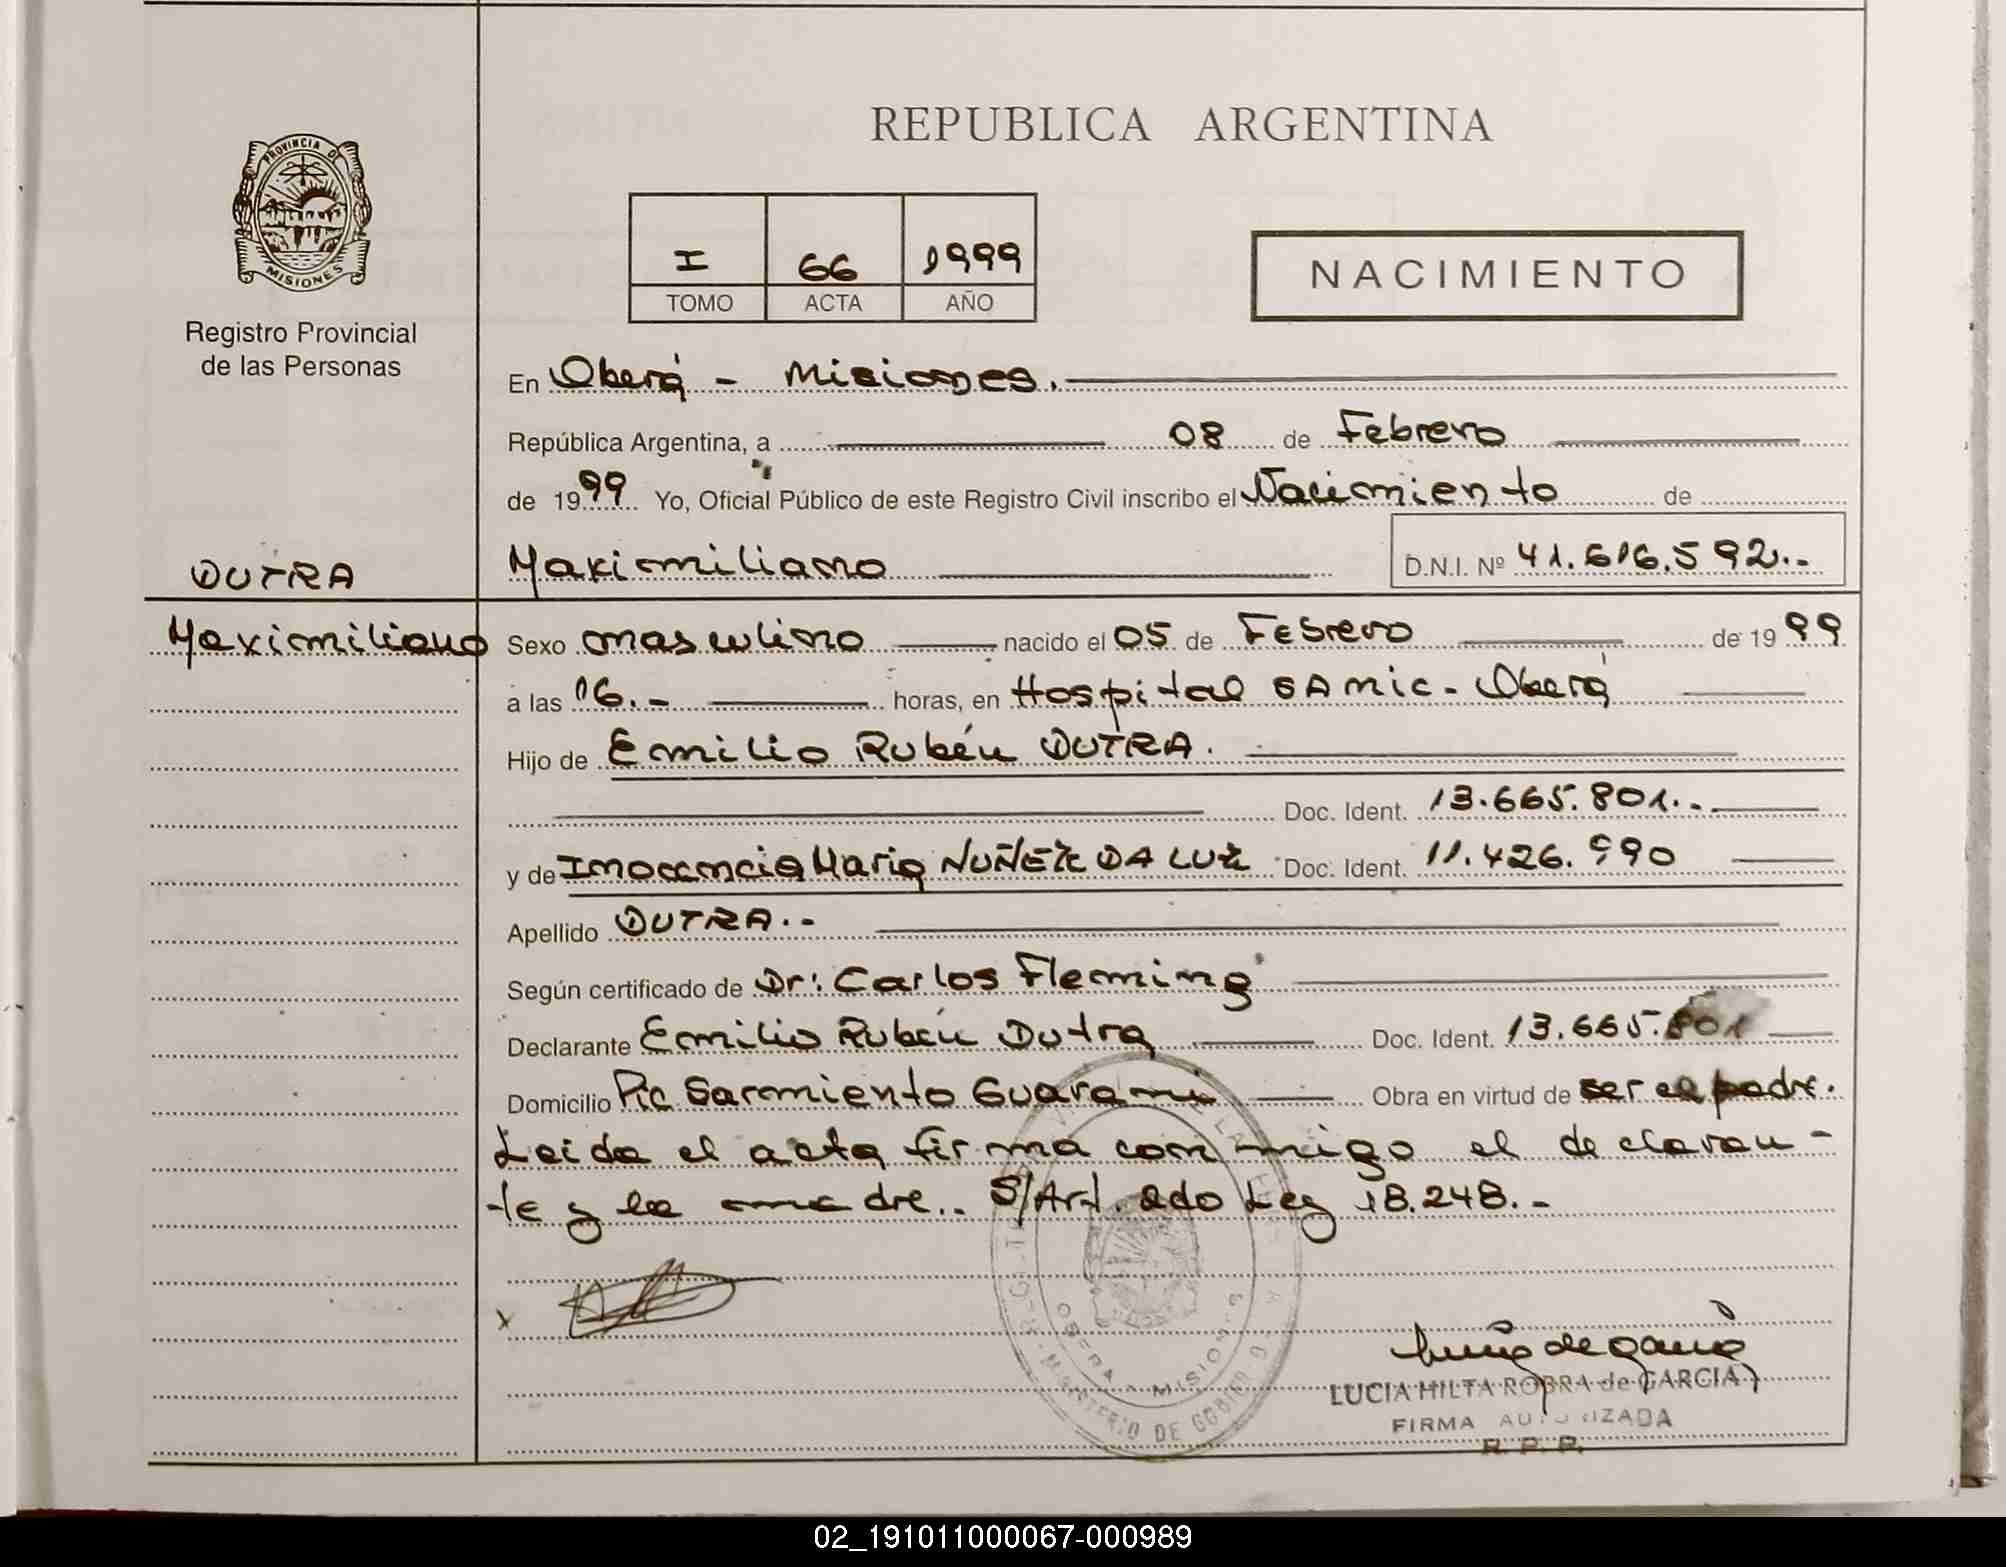 REPUBLICA ARGENTINA
PROVINCIA DE
MISIONES
Registro Provincial
de las Personas
I 66 1999
TOMO ACTA AÑO
NACIMIENTO
En Oberá - Misiones.
República Argentina, a 08 de Febrero
de 1999 Yo, Oficial Público de este Registro Civil inscribo el Nacimiento de
DUTRA
Maximiliano D.N.I. Nº 41.616.592.-
Maximiliano
Sexo masculino nacido el 05 de Febrero de 1999
a las 16.- horas, en Hospital SAMIC - Oberá
Hijo de Emilio Rubén DUTRA.
Doc. Ident. 13.665.801.-
y de Inocencia Maria NUÑEZ DA LUZ Doc. Ident. 11.426.990
Apellido DUTRA.-
Según certificado de Dr: Carlos Fleming
Declarante Emilio Rubén Dutra Doc. Ident. 13.665.801
Domicilio Pic. Sarmiento Guarani Obra en virtud de ser el padre.
Leida el acta firma conmigo el declaran-
te y la madre.. S/Art. 2do Ley 18.248.-
x
OBERA - MISIONES
MINISTERIO DE GOBIERNO
LUCIA HILTA ROBRA de GARCIA
FIRMA AUTORIZADA
R. P. P.
02_191011000067-000989